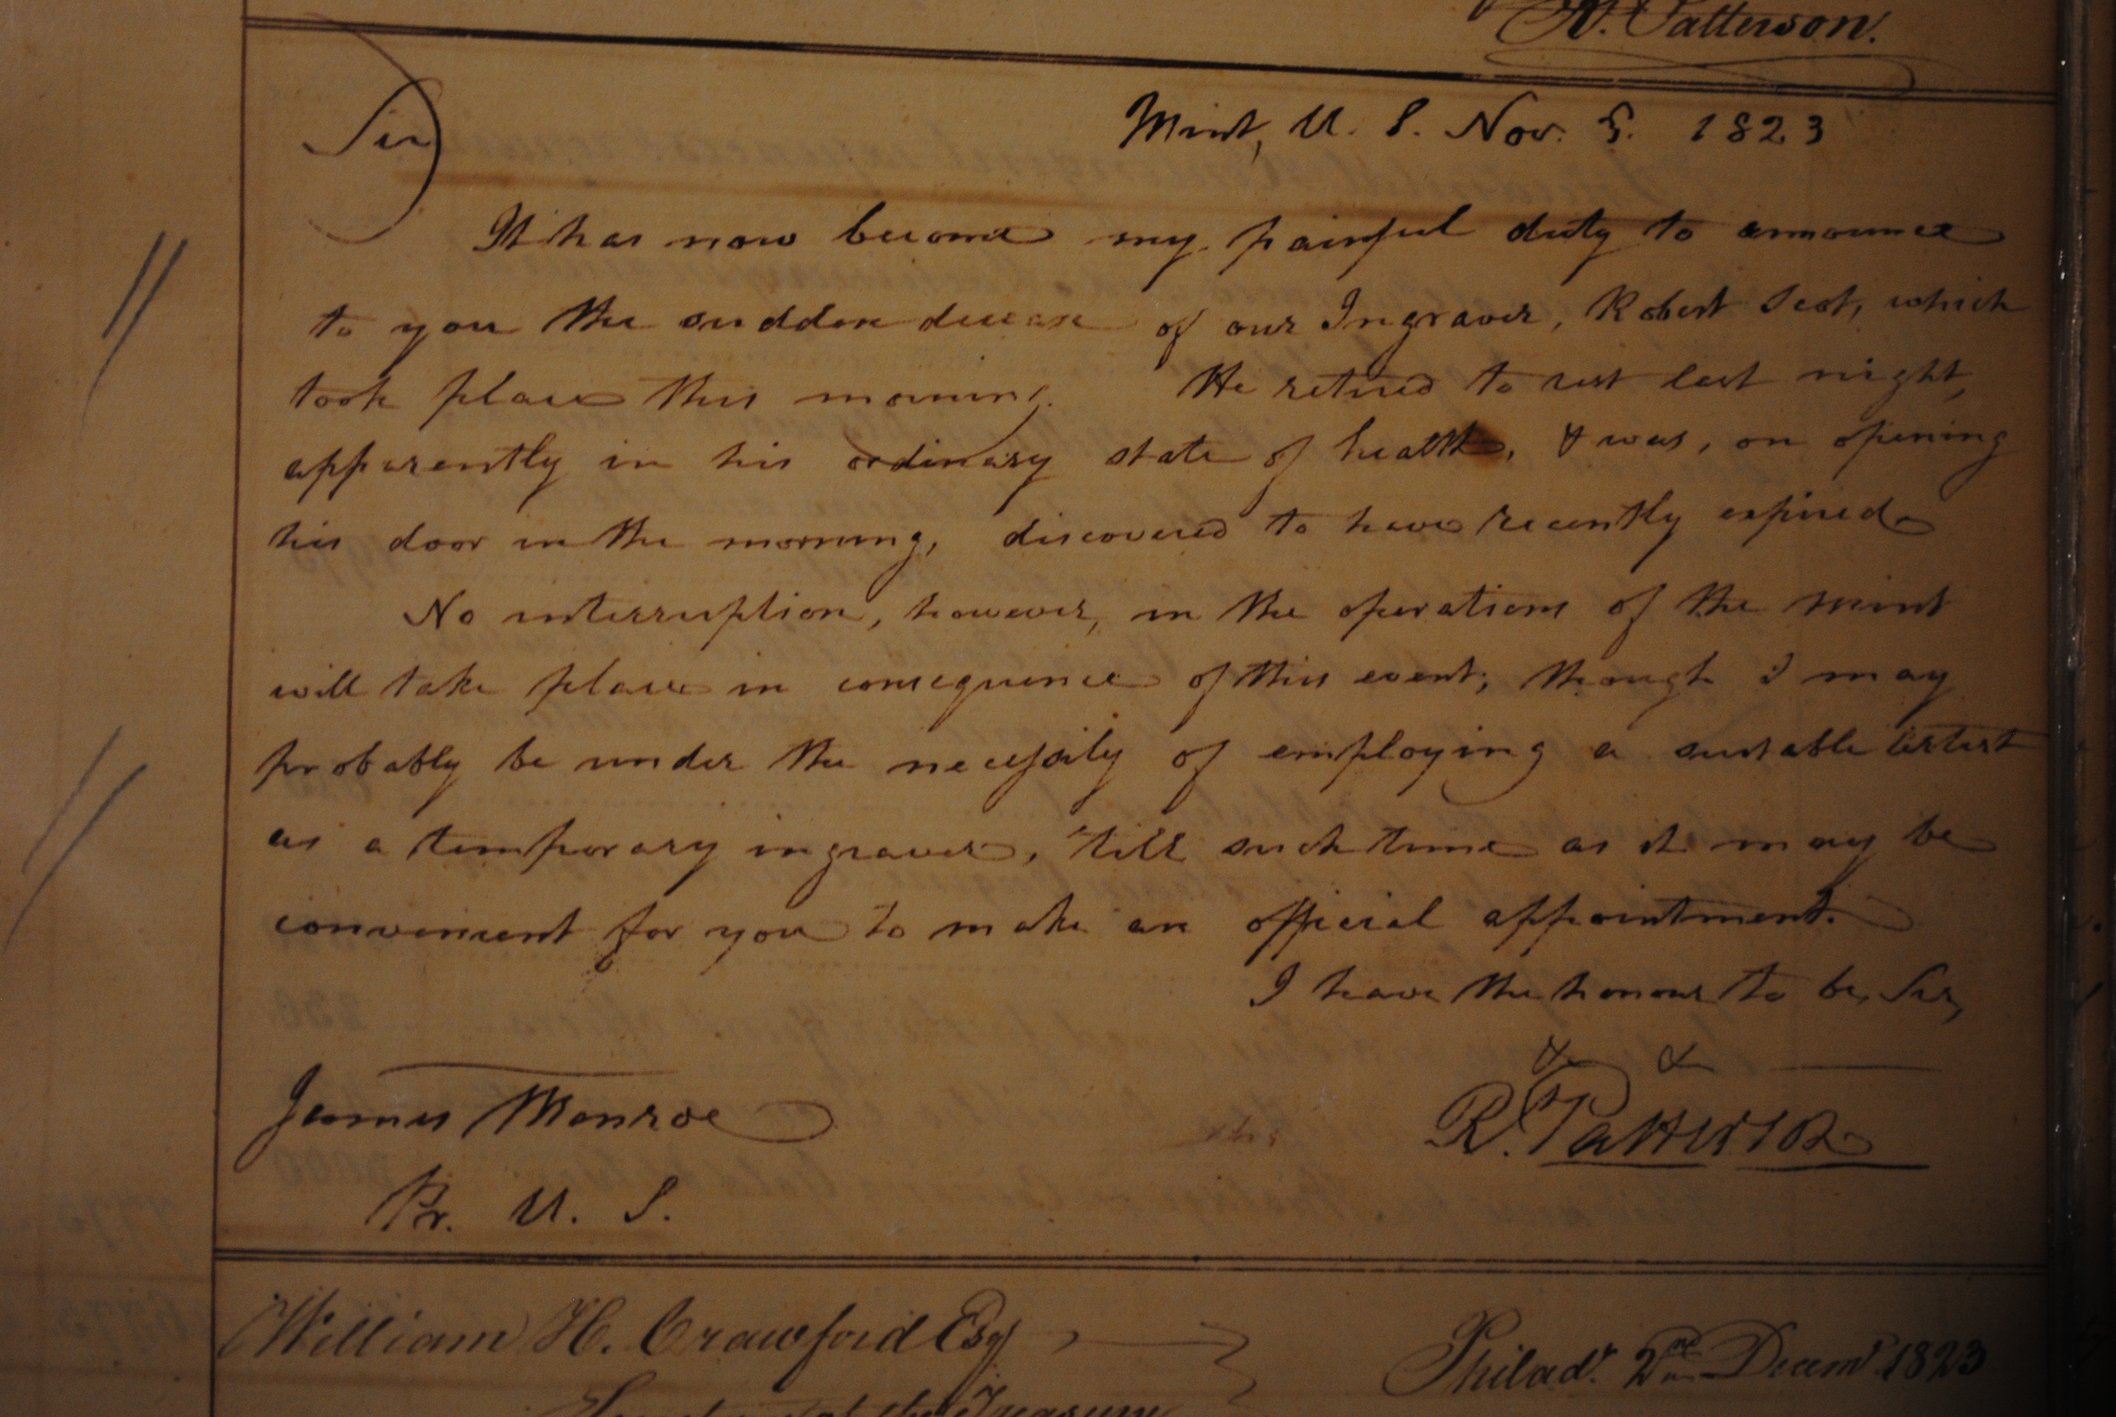 R. Patterson.
Mint, U. S. Nov. 3. 1823
Sir
It has now become my painful duty to announce
to you the sudden decease of our Ingraver, Robert Scot, which
took place this morning. He retired to rest last night,
apparently in his ordinary state of health, & was, on opening
his door in the morning, discovered to have recently expired
No interruption, however, in the operations of the mint
will take place in consequence of this event; though I may
probably be under the necessity of employing a suitable artist
as a temporary ingraver, 'till such time as it may be
convenient for you to make an official appointment.
I have the honour to be, Sir,
& &
James Monroe
R. Patterson
Pr. U. S.
William H. Crawford Esqr
Philada. 2nd Decemr 1823
of the Treasury